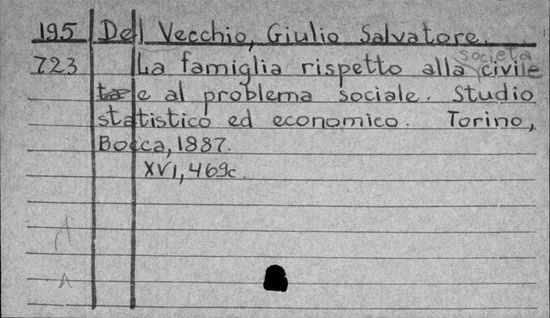 195 Del Vecchio, Giulio Salvatore.
società
723 La famiglia rispetto alla civile
e al problema sociale. Studio
statistico ed economico. Torino,
Bocca, 1887.
XVI, 469c.